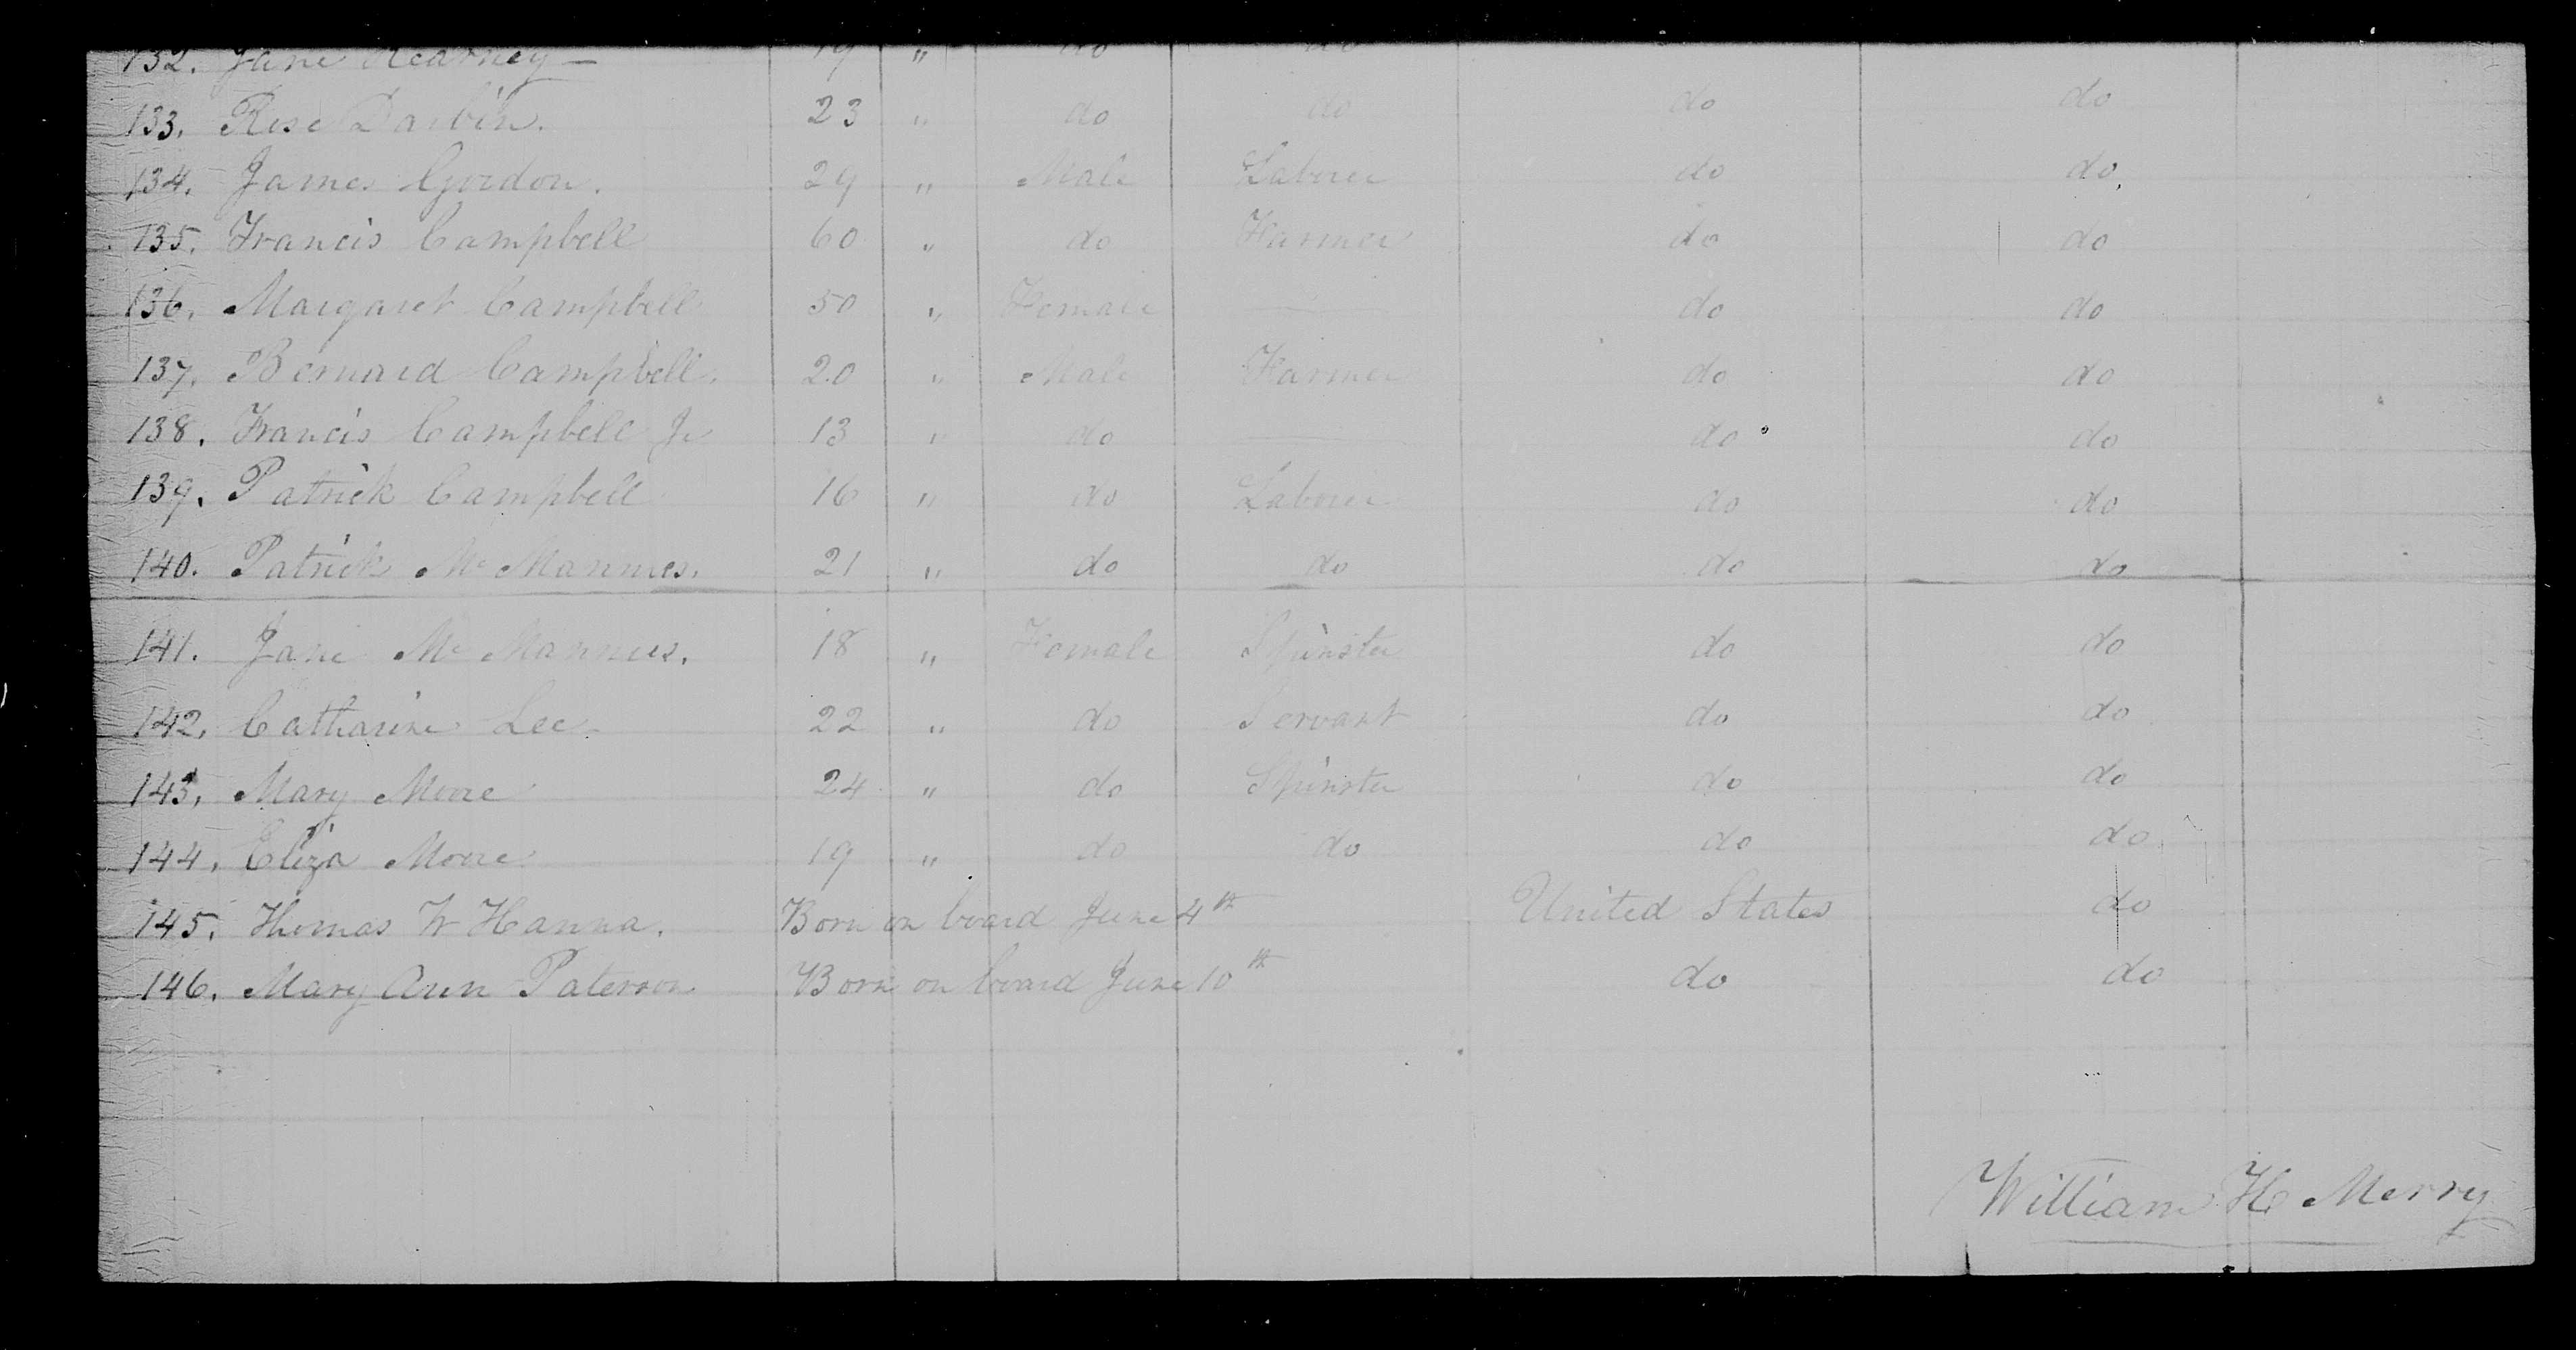 132. Jane Kearney — 19 " do do
133. Rose Darbin. 23 " do do do do
134. James Gordon. 29 " Male Laborer do do
135. Francis Campbell 60 " do Farmer do do
136. Margaret Campbell 50 " Female — do do
137. Bernard Campbell. 20 " Male Farmer do do
138. Francis Campbell Jr 13 " do — do do
139. Patrick Campbell 16 " do Laborer do do
140. Patrick Mc Mannus. 21 " do do do do
141. Jane Mc Mannus. 18 " Female Spinster do do
142. Catharine Lee 22 " do Servant do do
143. Mary Moore 24 " do Spinster do do
144. Eliza Moore 19 " do do do do
145. Thomas W Hanna. Born on board June 4th United States do
146. Mary Ann Paterson Born on board June 10th do do
William H Merry